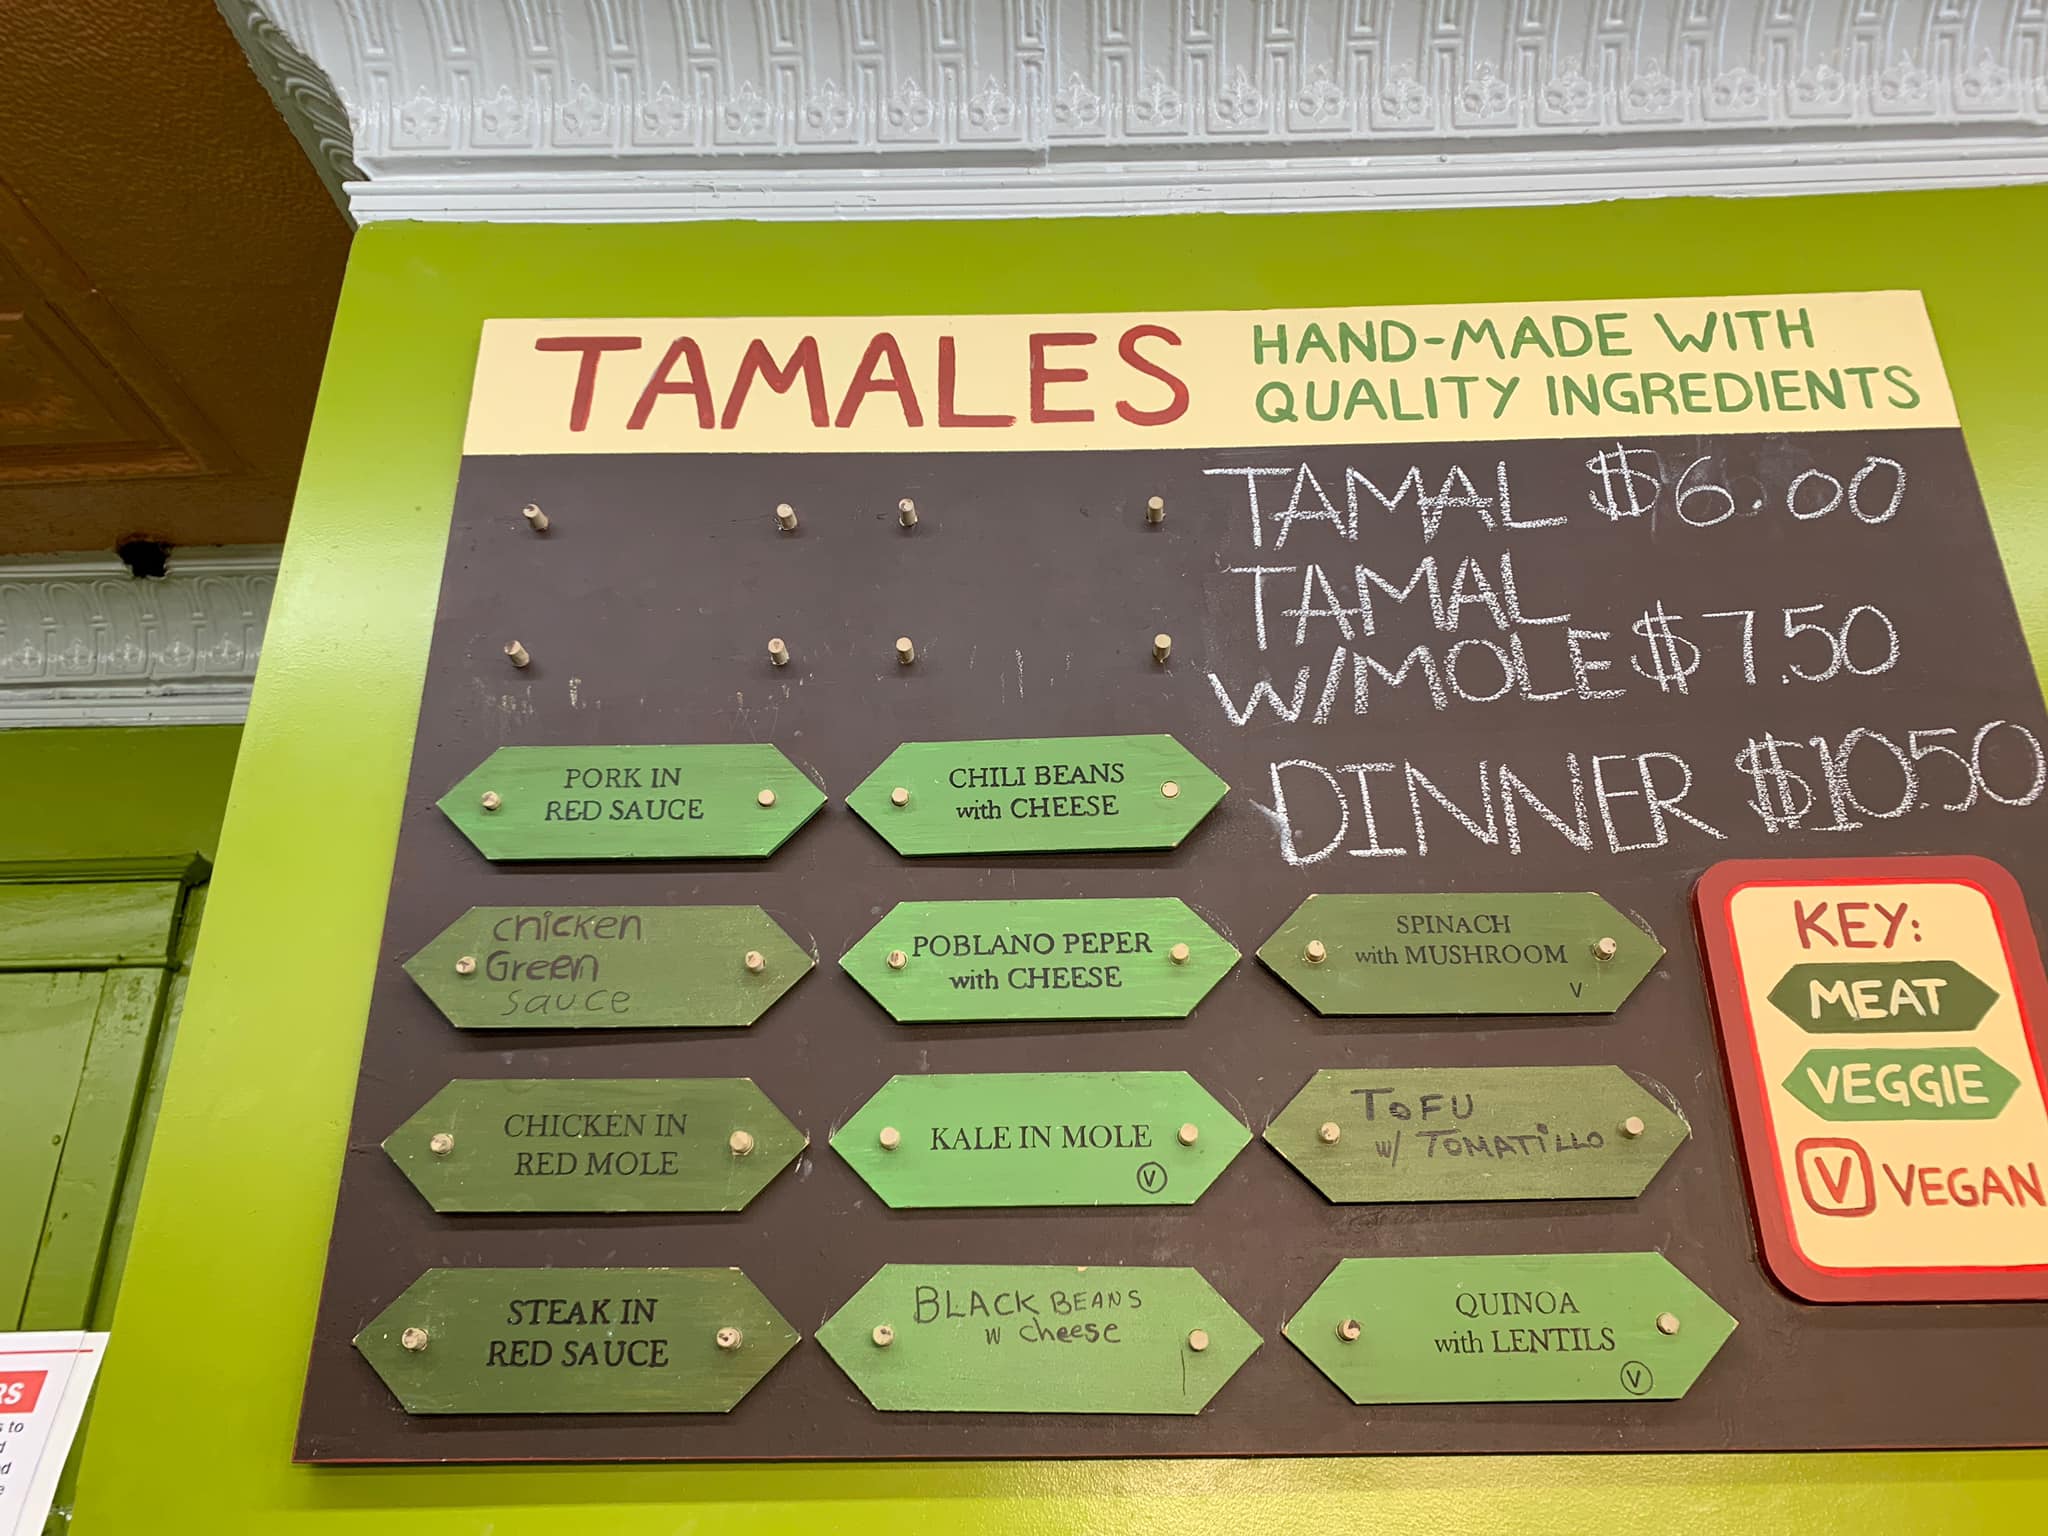 TAMALES
HAND-MADE WITH
QUALITY INGREDIENTS
TAMAL $6.00
TAMAL
W/MOLE $7.50
DINNER $10.50
PORK IN
RED SAUCE
CHILI BEANS
with CHEESE
chicken
Green
sauce
POBLANO PEPER
with CHEESE
SPINACH
with MUSHROOM
V
CHICKEN IN
RED MOLE
KALE IN MOLE
V
TOFU
w/ TOMATILLO
STEAK IN
RED SAUCE
BLACK BEANS
w cheese
QUINOA
with LENTILS
V
KEY:
MEAT
VEGGIE
V VEGAN
RS
to